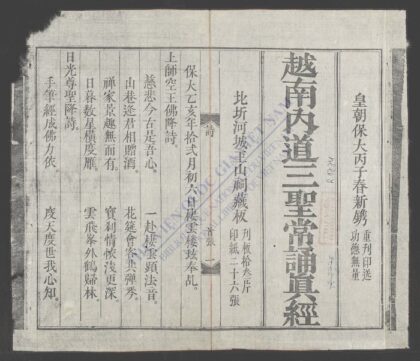 皇朝保大丙子春新鐫
重刊印送
功德無量
越南內道三聖常誦真經
北圻河城玉山祠藏板
列板拾叁片
印紙二十六張
詩
首張
一
保大乙亥年拾弍月初六日
雲樓
奉乩
上師空王佛降詩
慈悲今古是吾心
一赴樓雲顯法音
山巷逢君相贈酒
花
會客共彈琴
禪家景趣無而有
寶剎情懷淺更深
日暮數星橫度雁
雲飛峯外鶴歸林
日光尊聖降詩
手筆經成佛力依
度天度世我心知